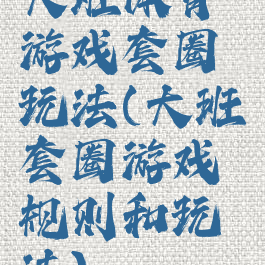 大班体育
游戏套圈
玩法(大班
套圈游戏
规则和玩
法)